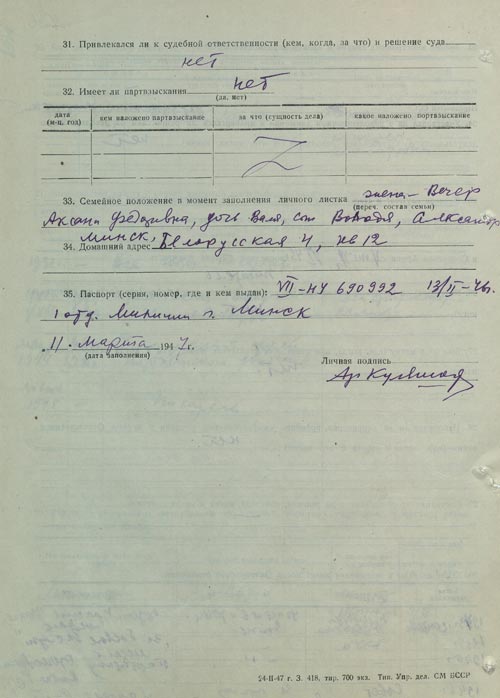 31. Привлекался ли к судебной ответственности (кем, когда, за что) и решение суда
нет
32. Имеет ли партвзыскания нет
(да, нет)
дата (м-ц, год) кем наложено партвзыскание за что (сущность дела) какое наложено партвзыскание
Z
33. Семейное положение в момент заполнения личного листка жена — Вечер
(переч. состав семьи)
дочь Валя, сын Володя, Александр
34. Домашний адрес Минск, Белорусская 4, кв 12
35. Паспорт (серия, номер, где и кем выдан): VII-НУ 690992 13/II-46г.
1 отд. Милиции г. Минск
"11" марта 1947г.
(дата заполнения)
Личная подпись
Ар Кулешов
24-II-47 г. З. 418, тир. 700 экз. Тип. Упр. дел. СМ БССР